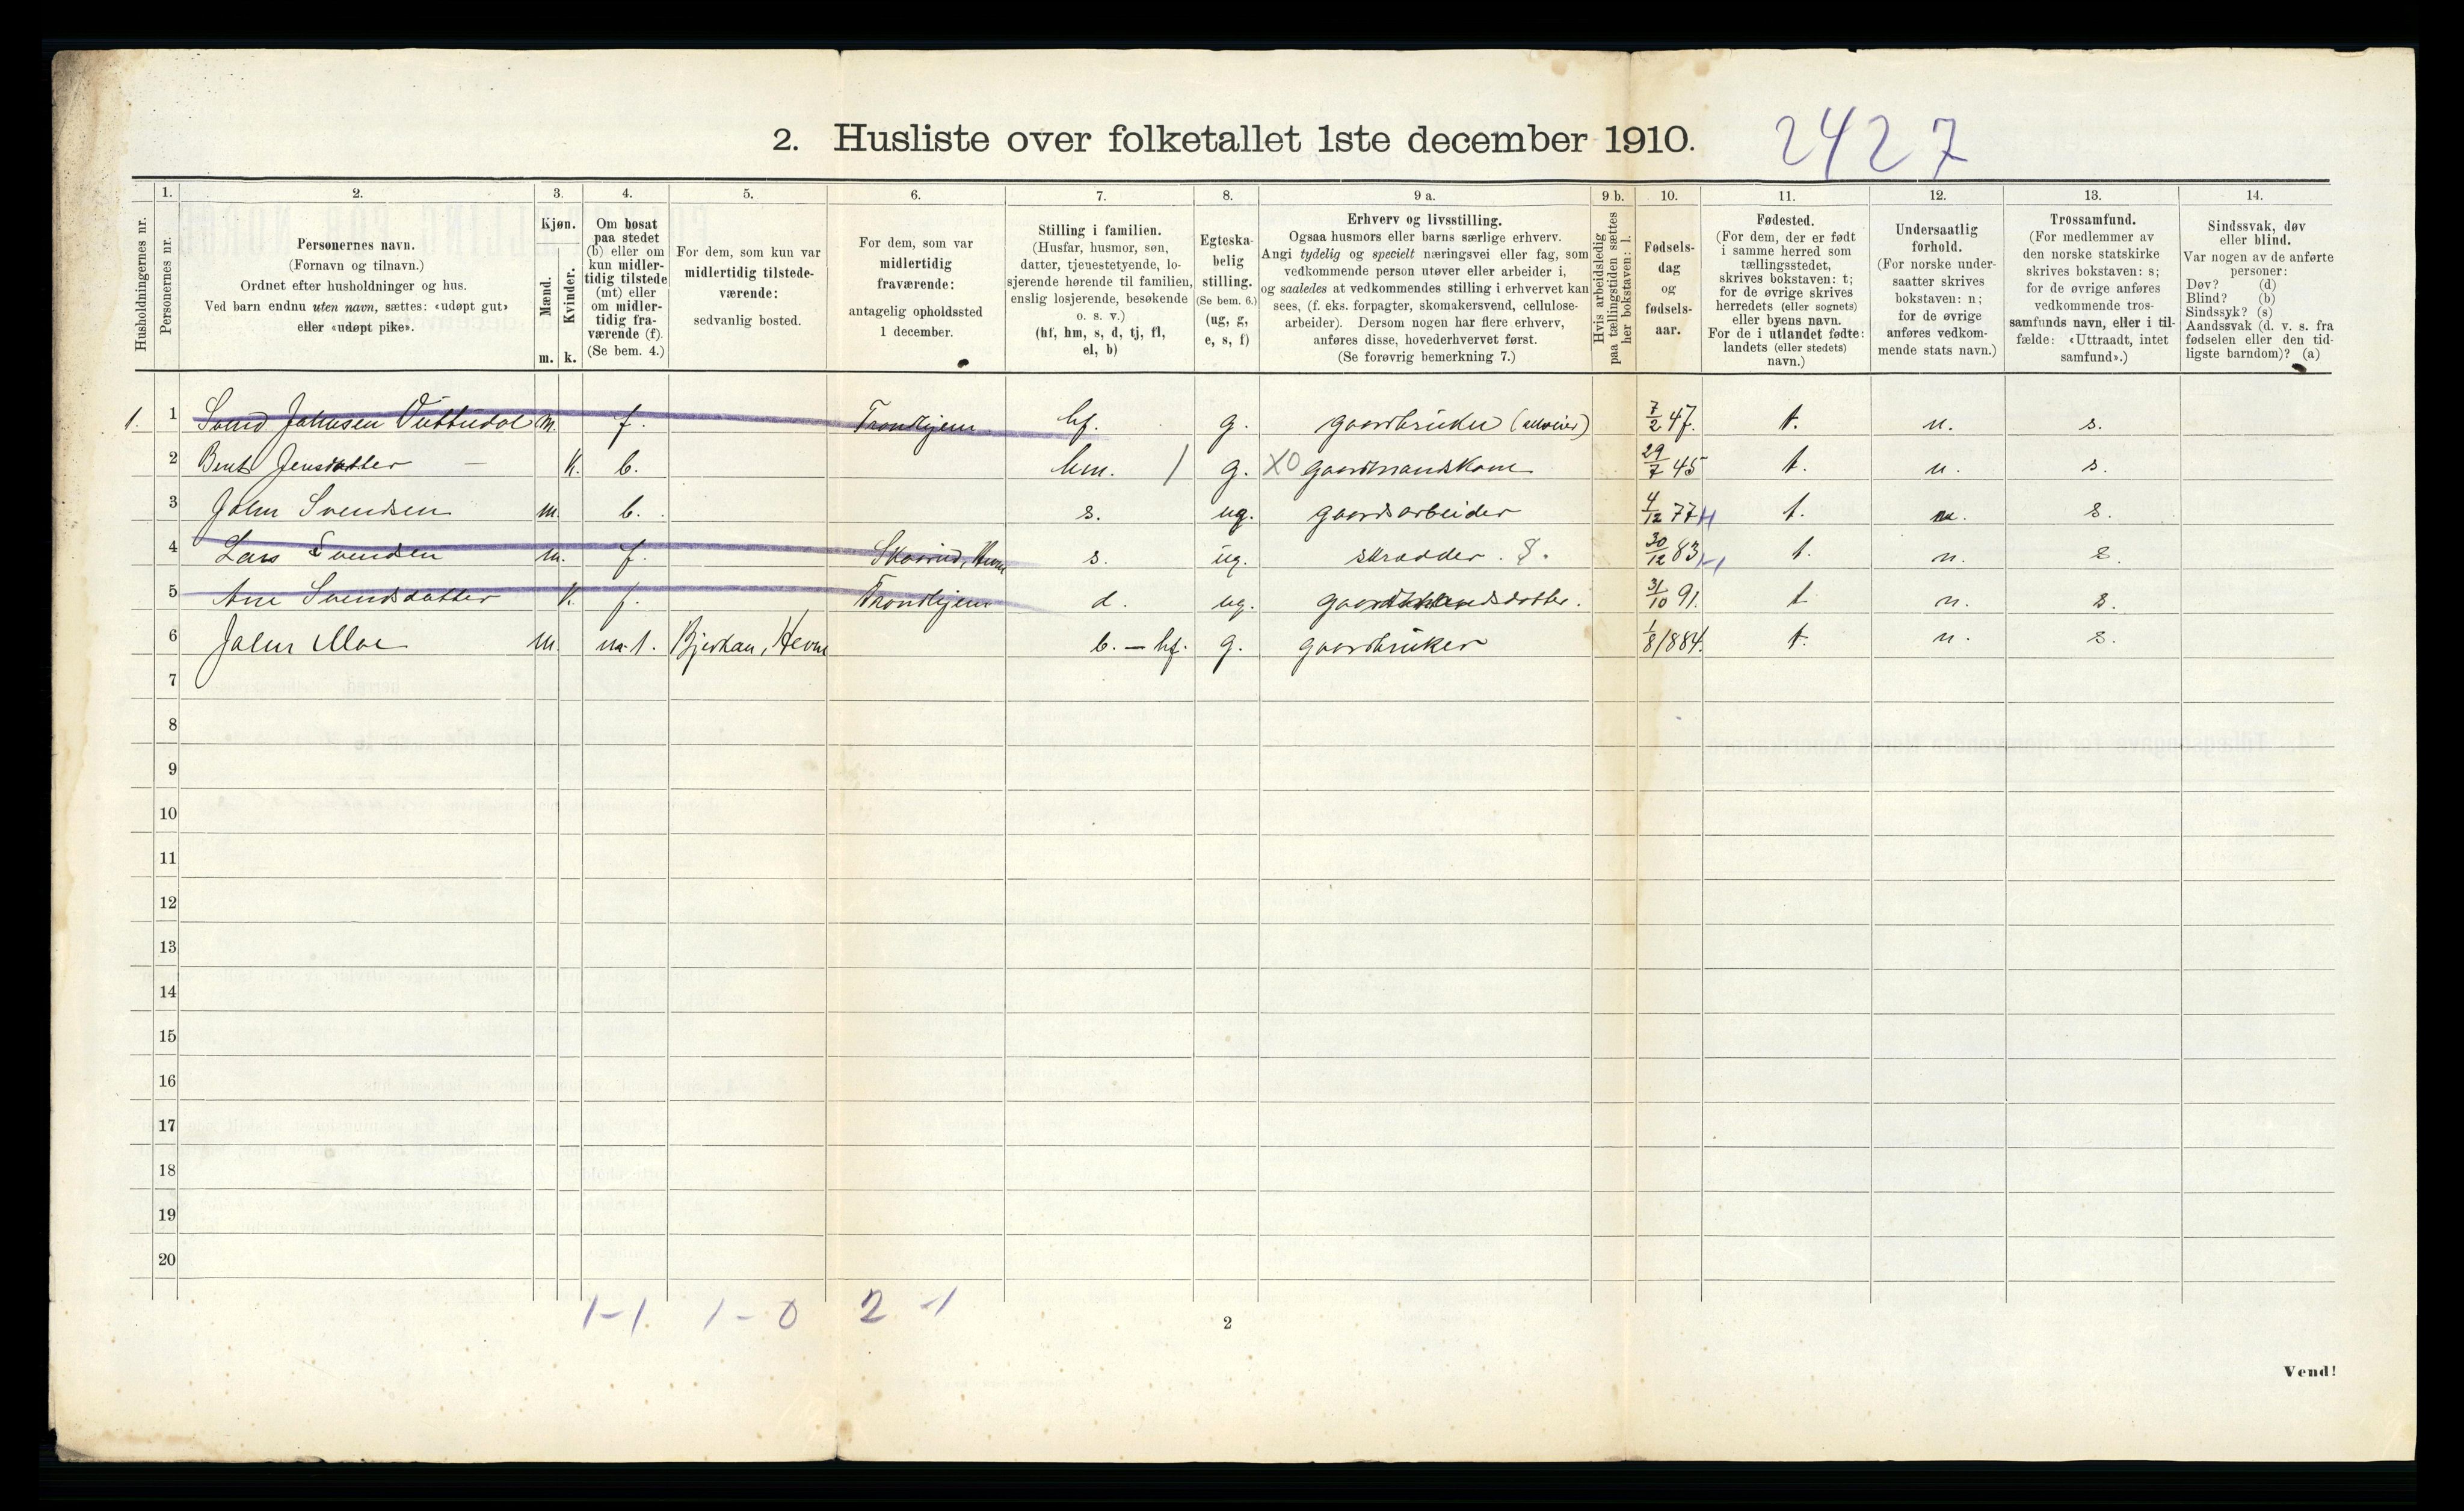 2. Husliste over folketallet 1ste december 1910.
2427
Husholdningernes nr.
1.
Personernes nr.
2.
Personernes navn.
(Fornavn og tilnavn.)
Ordnet efter husholdninger og hus.
Ved barn endnu uten navn, sættes: «udøpt gut»
eller «udøpt pike».
3.
Kjøn.
Mænd.
Kvinder.
m. k.
4.
Om bosat
paa stedet
(b) eller om
kun midler-
tidig tilstede
(mt) eller
om midler-
tidig fra-
værende (f).
(Se bem. 4.)
5.
For dem, som kun var
midlertidig tilstede-
værende:
sedvanlig bosted.
6.
For dem, som var
midlertidig
fraværende:
antagelig opholdssted
1 december.
7.
Stilling i familien.
(Husfar, husmor, søn,
datter, tjenestetyende, lo-
sjerende hørende til familien,
enslig losjerende, besøkende
o. s. v.)
(hf, hm, s, d, tj, fl,
el, b)
8.
Egteska-
belig
stilling.
(Se bem. 6.)
(ug, g,
e, s, f)
9 a.
Erhverv og livsstilling.
Ogsaa husmors eller barns særlige erhverv.
Angi tydelig og specielt næringsvei eller fag, som
vedkommende person utøver eller arbeider i,
og saaledes at vedkommendes stilling i erhvervet kan
sees, (f. eks. forpagter, skomakersvend, cellulose-
arbeider). Dersom nogen har flere erhverv,
anføres disse, hovederhvervet først.
(Se forøvrig bemerkning 7.)
9 b.
Hvis arbeidsledig
paa tællingstiden sættes
her bokstaven: l.
10.
Fødsels-
dag
og
fødsels-
aar.
11.
Fødested.
(For dem, der er født
i samme herred som
tællingsstedet,
skrives bokstaven: t;
for de øvrige skrives
herredets (eller sognets)
eller byens navn.
For de i utlandet fødte:
landets (eller stedets)
navn.)
12.
Undersaatlig
forhold.
(For norske under-
saatter skrives
bokstaven: n;
for de øvrige
anføres vedkom-
mende stats navn.)
13.
Trossamfund.
(For medlemmer av
den norske statskirke
skrives bokstaven: s;
for de øvrige anføres
vedkommende tros-
samfunds navn, eller i til-
fælde: «Uttraadt, intet
samfund».)
14.
Sindssvak, døv
eller blind.
Var nogen av de anførte
personer:
Døv? (d)
Blind? (b)
Sindssyk? (s)
Aandssvak (d. v. s. fra
fødselen eller den tid-
ligste barndom)? (a)
1. 1 Svend Johnsen m. f. Trondhjem hf. g. gaardbruker (selveier) 7/2 47. t. n. s.
2 Berit Jensdatter — K. b. hm. / g. XO gaardmandskone 29/7 45 t. n. s.
3 John Svendsen m. b. s. ug. gaardsarbeider 4/12 77 t. n. s.
4 Lars Svendsen m. f. Hevne s. ug. skrædder. 30/12 83 t. n. s.
5 Ane Svendsdatter K. f. Trondhjem d. ug. 31/10 91. t n. s.
6 John Moe m. m.t. Bjerkan, Hevne b. – hf. g. gaardbruker 1/8 1884. t. n. s.
7
8
9
10
11
12
13
14
15
16
17
18
19
20
1-1. 1-0 2-1
2
Vend!